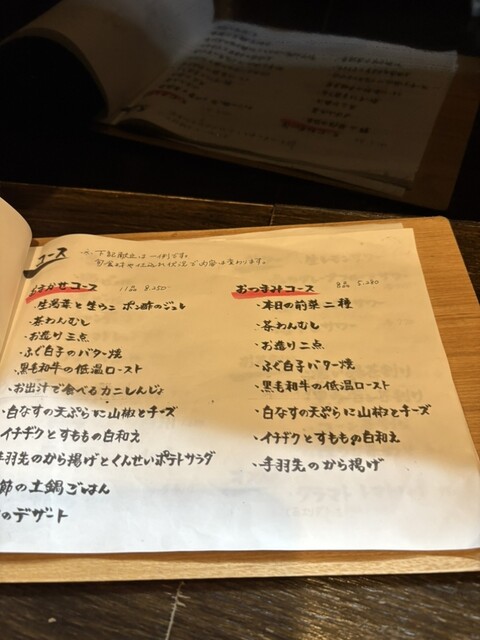 コース
※下記献立は一例です。
食材や仕込み状況で内容は変わります。
まかせコース 11品 8.250-
・生湯葉と生うに ポン酢のジュレ
・茶わんむし
・お造り三点
・ふぐ白子のバター焼
・黒毛和牛の低温ロースト
・お出汁で食べるカニしんじょ
・白なすの天ぷらに山椒とチーズ
・イチヂクとすももの白和え
手羽先のから揚げとくんせいポテトサラダ
節の土鍋ごはん
のデザート
おつまみコース 8品 5.280
・本日の前菜二種
・茶わんむし
・お造り二点
・ふぐ白子バター焼
・黒毛和牛の低温ロースト
・白なすの天ぷらに山椒とチーズ
・イチヂクとすももの白和え
・手羽先のから揚げ